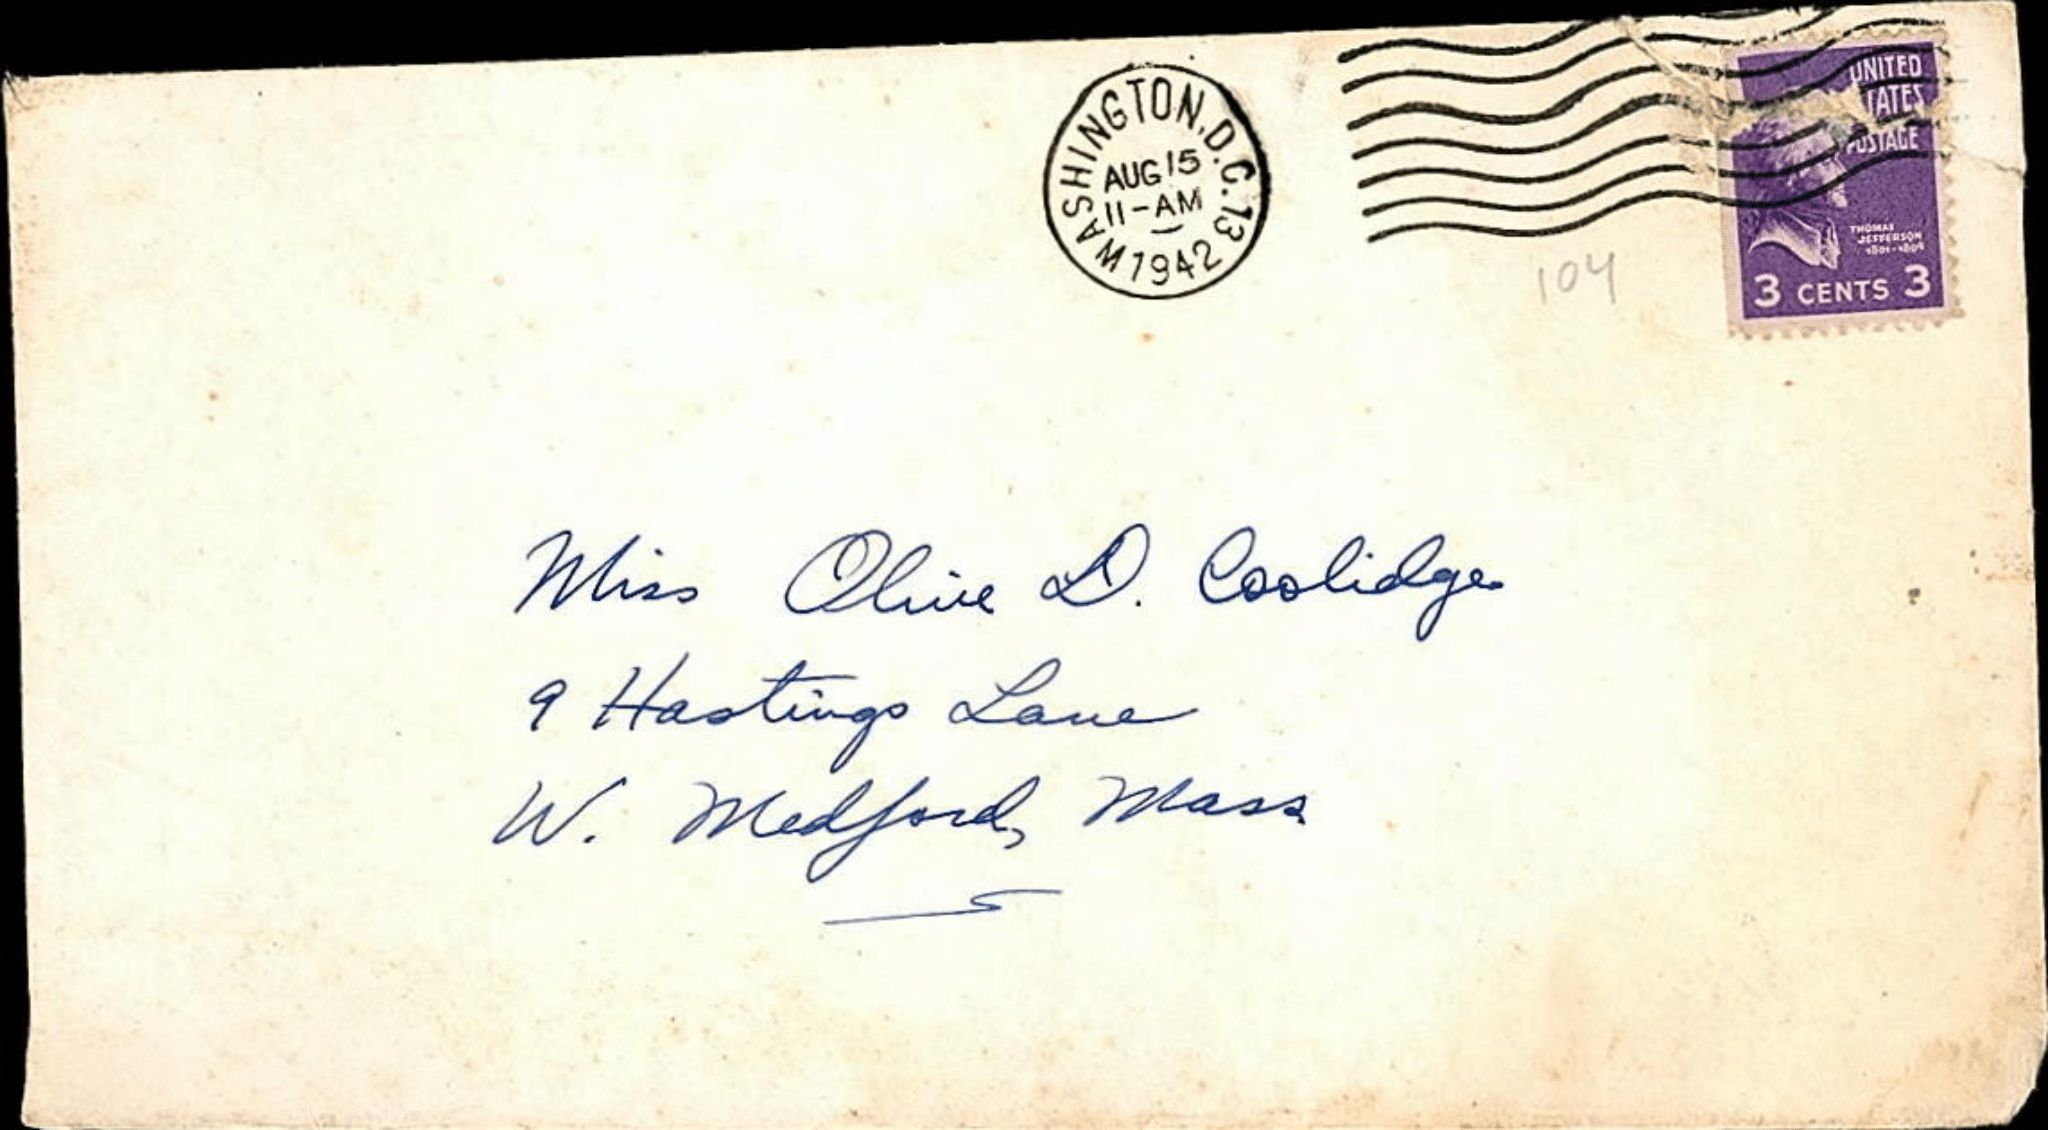 WASHINGTON, D.C. 13
AUG 15
11-AM
1942
UNITED
TATES
POSTAGE
THOMAS
JEFFERSON
1801-1809
3 CENTS 3
104
Miss Olive D. Coolidge
9 Hastings Lane
W. Medford, Mass